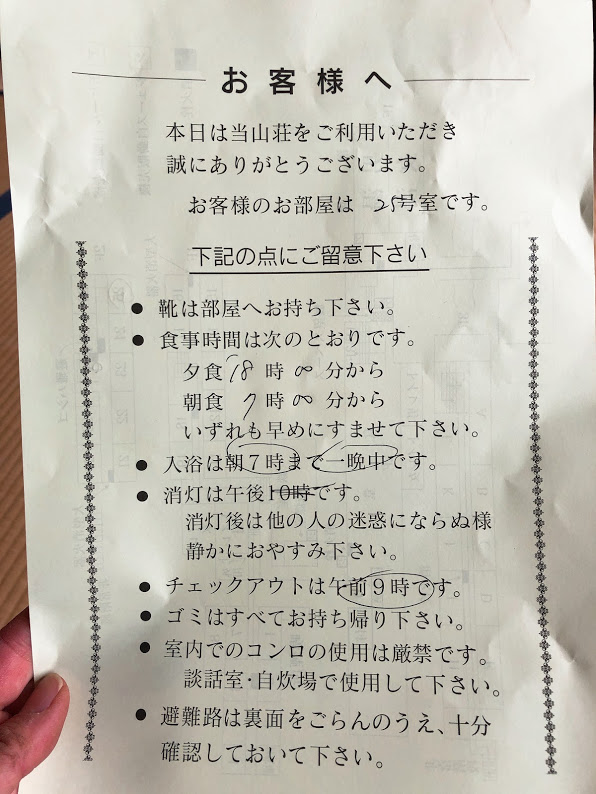 お客様へ
本日は当山荘をご利用いただき
誠にありがとうございます。
お客様のお部屋は 25号室です。
下記の点にご留意下さい
● 靴は部屋へお持ち下さい。
● 食事時間は次のとおりです。
夕食 18 時 00 分から
朝食 7 時 00 分から
いずれも早めにすませて下さい。
● 入浴は朝7時まで一晩中です。
● 消灯は午後10時です。
消灯後は他の人の迷惑にならぬ様
静かにおやすみ下さい。
● チェックアウトは午前9時です。
● ゴミはすべてお持ち帰り下さい。
● 室内でのコンロの使用は厳禁です。
談話室・自炊場で使用して下さい。
● 避難路は裏面をごらんのうえ、十分
確認しておいて下さい。